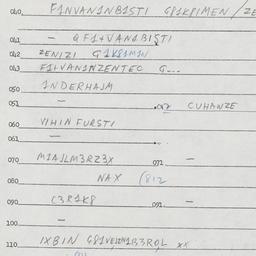 040 F1NVAN1NB1STI G81K8IMEN / ZE
041 — GF1+VAN1BISTI
042 ZENIZI G1K81M1N
043 F1LVAN1NZENTEC G...
050 1NDERHASM
051 — 052 CUHANZE
060 VIHIN FURSTI
061 —
070 M1ASLM3RZ3X 071 —
080 NAX (812
090 C3R1K8 091 —
100 —
110 IXBIN G81VEIZN1B3ROL XX